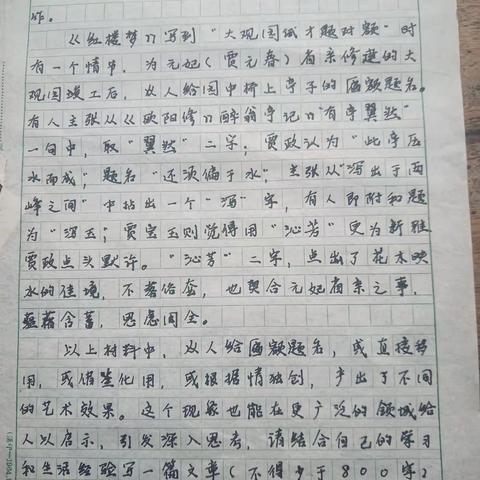 作。
《红楼梦》写到“大观园试才题对额”时
有一个情节，为元妃（贾元春）省亲修建的大
观园竣工后，众人给园中桥上亭子的匾额题名。
有人主张从《欧阳修》醉翁亭记》“有亭翼然”
一句中，取“翼然”二字；贾政认为“此亭压
水而成”，题名“还须偏于水”，主张从“泻出于两
峰之间”中拈出一个“泻”字，有人即附和题
为“泻玉”；贾宝玉则觉得用“沁芳”更为新雅，
贾政点头默许。“沁芳”二字，点出了花木映
水的佳境，不落俗套，也契合元妃省亲之事，
蕴藉含蓄，思虑周全。
以上材料中，众人给匾额题名，或直接移
用，或借鉴化用，或根据情独创，产出了不同
的艺术效果。这个现象也能在更广泛的领域给
人以启示，引发深入思考，请结合自己的学习
和生活经验写一篇文章（不得少于800字）